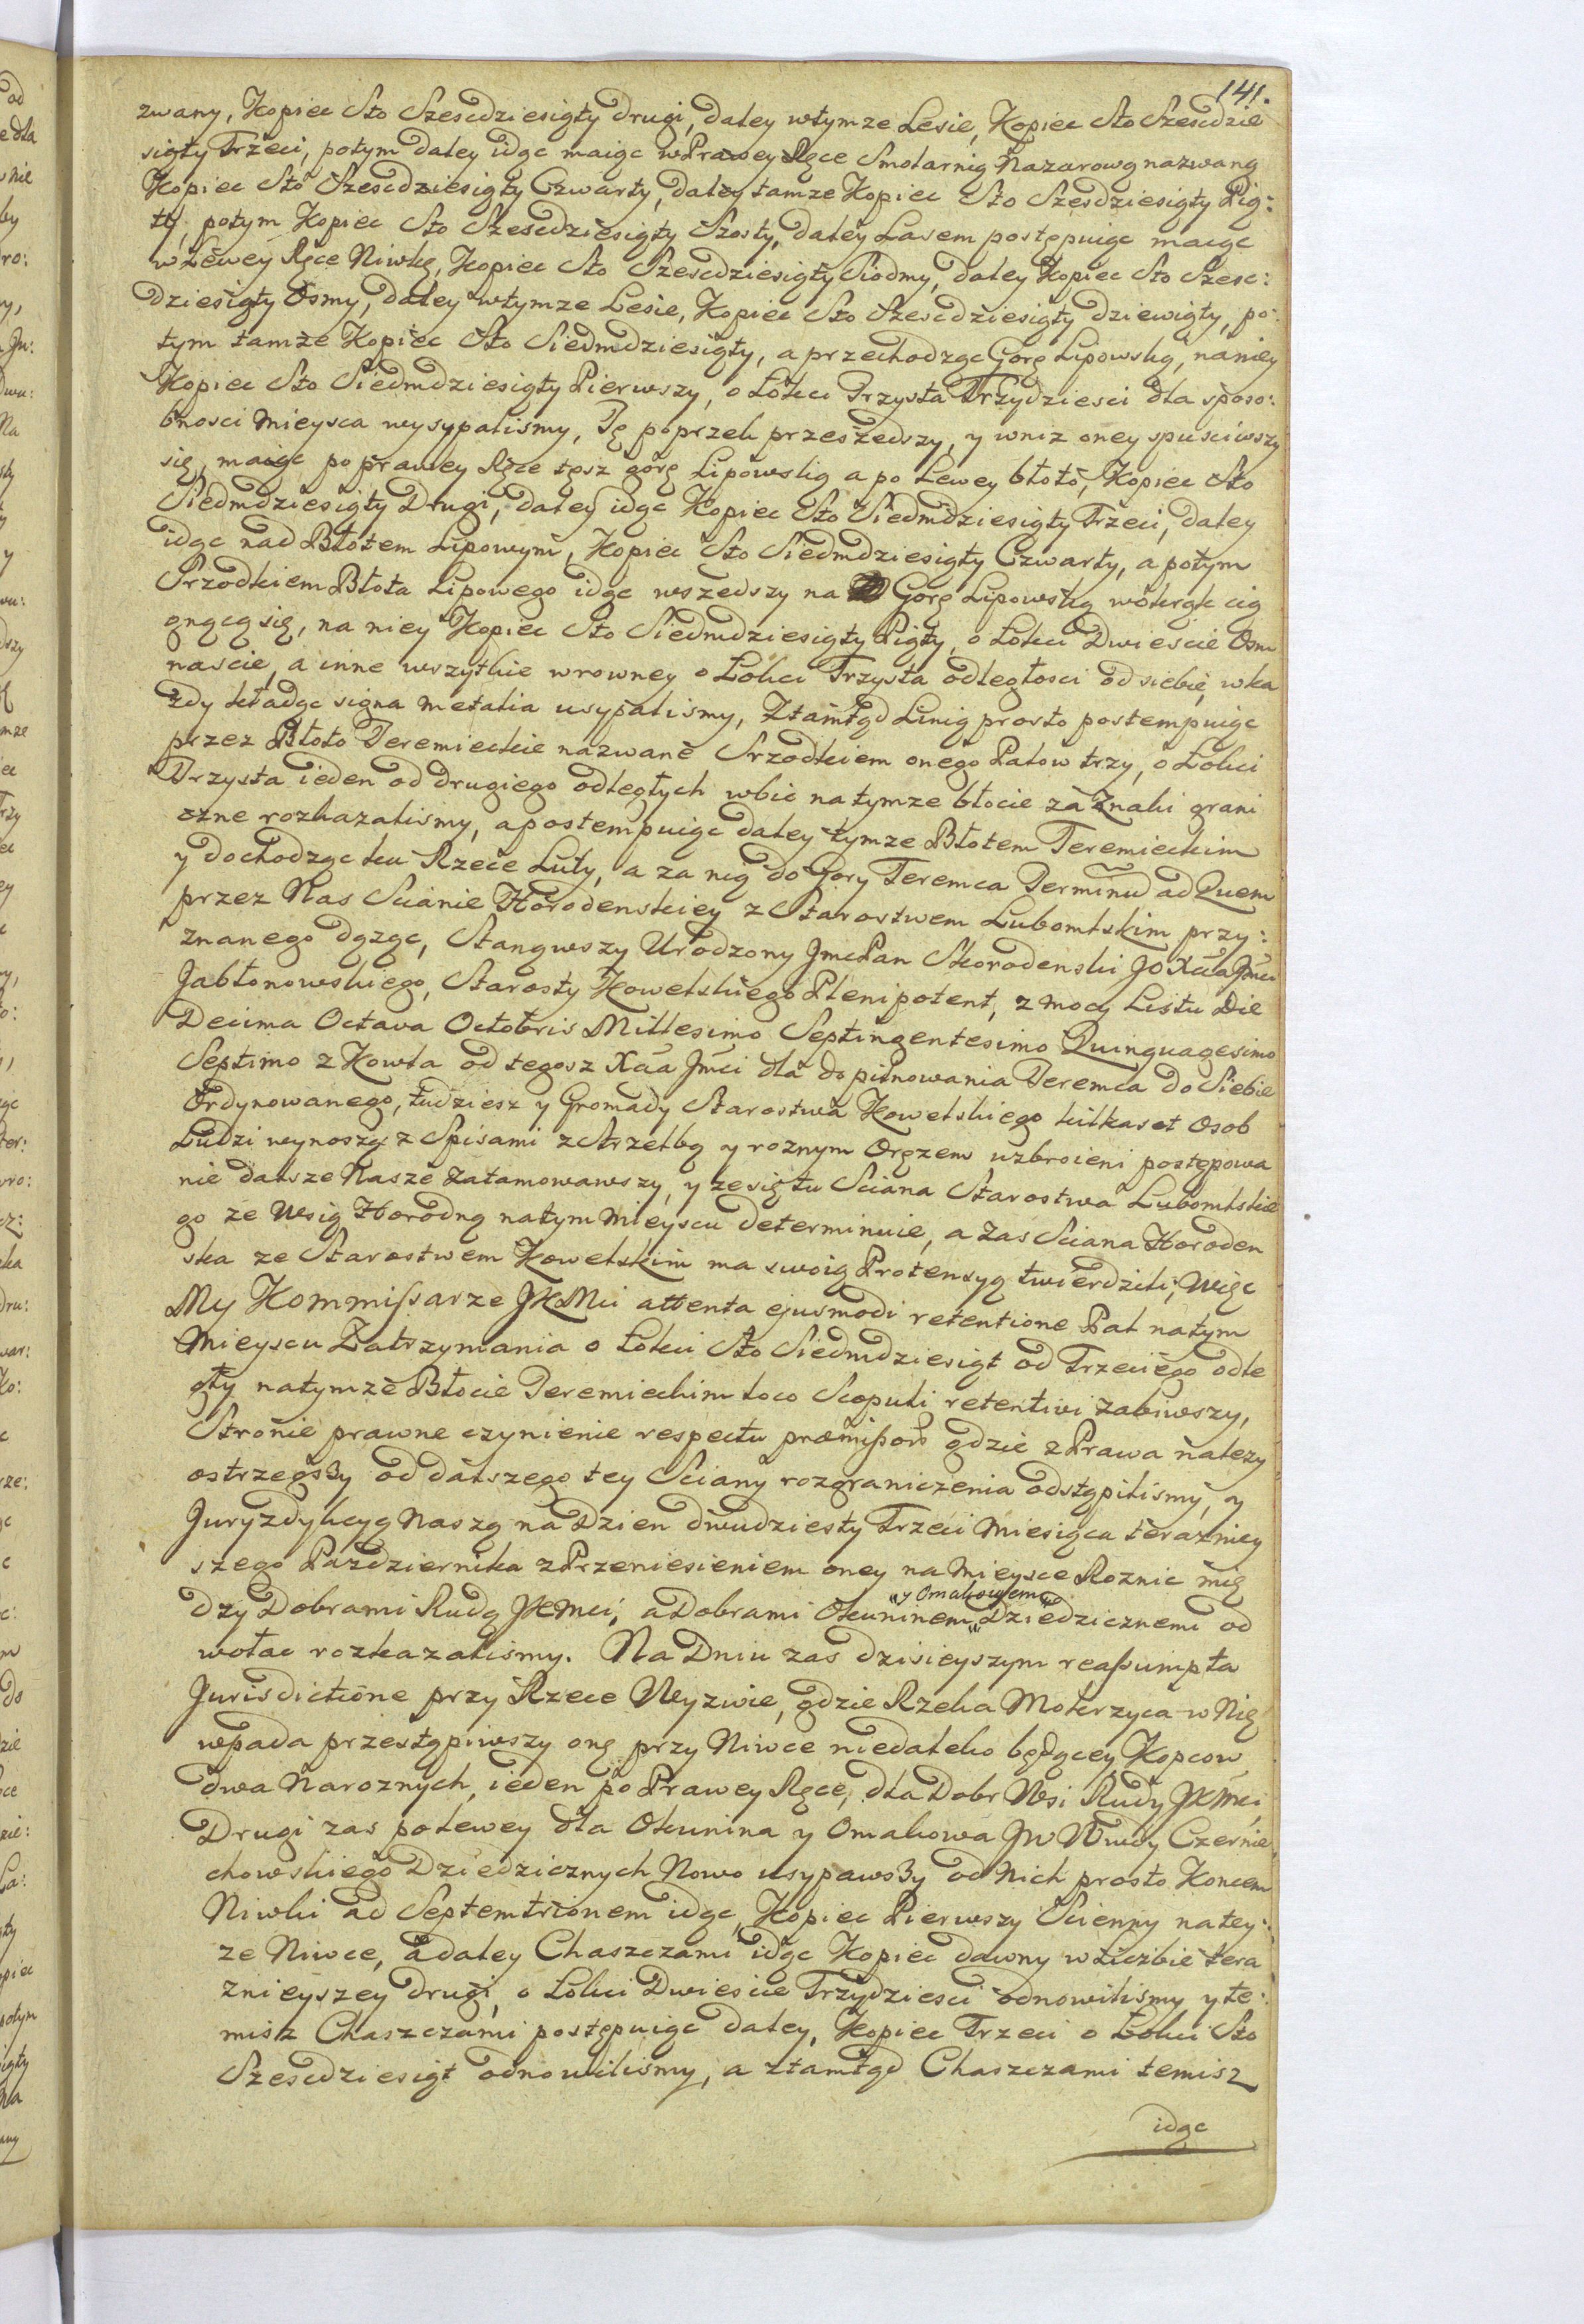 141.
zwany, Kopiec Sto Szescdziesiąty Drugi, daley wtymze Lesie, Kopiec Sto Szescdzie
siąty Trzeci, potym daley idąc maiąc wPrawey Ręce Smolarnią Nazarową nazwaną
Kopiec Sto Szescdziesiąty Czwarty, daley tamze Kopiec Sto Szesdziesiąty Pią:
ty, potym Kopiec Sto Szescdziesiąty Szosty, daley Lasem postępuiąc maiąc
w Lewey Ręce Niwkę, Kopiec Sto Szescdziesiąty Siodmy, daley Kopiec Sto Szesc:
dziesiąty Osmy, daley wtymze Lesie, Kopiec Sto Szescdziesiąty dziewiąty, po:
tym tamze Kopiec Sto Siedmdziesiąty, a przechodząc Gorę Lipowską, naniey
Kopiec Sto Siedmdziesiąty Pierwszy, o Łokci Trzysta Trzydziesci dla sposo:
bnosci Mieysca wysypalismy, Tę poprzek przeszedszy, y wniz oney spusciwszy
się, maiąc po prawey Ręce tęsz gorę Lipowską a po Lewey błoto, Kopiec Sto
Siedmdziesiąty Drugi, daley idąc Kopiec Sto Siedmdziesiąty Trzeci, daley
idąc nad Błotem Lipowym, Kopiec Sto Siedmdziesiąty Czwarty, a potym
Srzodkiem Błota Lipowego idąc wszedszy na Gorę Lipowską wokrąk cią
gnącą się, na niey Kopiec Sto Siedmdziesiąty Piąty, o Łokci Dwiescie Osm
nascie, a inne wszytkie wrowney o Łokci Trzysta odległosci od siebie, wka
zdy kładąc signa metalia usypalismy, Ztamtąd Linią prosto postempuiąc
przez Błoto Teremieckie nazwane Srzodkiem onego Palow trzy, o Łokci
Trzysta ieden od Drugiego odległych wbic natymze błocie za Znaki grani
czne rozkazalismy, a postempuiąc daley tymze Błotem Teremieckim
y dochodząc ku Rzece Luty, a za nią do Gory Teremca Terminu ad Quem
przez Nas Scianie Horodenskiey z Starostwem Lubomlskim przy:
znanego dąząc, Stanąwszy Urodzony Jmc Pan Skorodenski JO Xcia Jmci
Jabłonowskiego, Starosty Kowelskiego Plenipotent, z mocy Listu Die
Decima Octava Octobris Millesimo Septingentesimo Quinquagesimo
Septimo z Kowla od tegosz Xcia Jmci dla dopilnowania Teremca do Siebie
Ordynowanego, tudziesz y Gromady Starostwa Kowelskiego kilkaset Osob
Ludzi wynoszą z Spisami z Strzelbą y roznym Orężem uzbroieni postępowa
nie dalsze Nasze Zatamowawszy, y ze się tu Sciana Starostwa Lubomlskie
go ze Wsią Horodną natym Mieyscu determinuie, a zas Sciana Horoden
ska ze Starostwem Kowelskim ma swoią Pretensyą twierdzili, Więc
My Kommissarze JKMci attenta ejusmodi retentione Pal natym
Mieyscu Zatrzymania o Łokci Sto Siedmdziesiąt od Trzeciego odle
gły natymze Błocie Teremieckim loco Scopuli retentivi zabiwszy,
Stronie prawne czynienie respectu præmissorū gdzie z Prawa nalezy
ostrzegszy od dalszego tey Sciany rozgraniczenia odstąpilismy, y
Juryzdykcyą Naszą na Dzien dwudziesty Trzeci Miesiąca teraźniey
szego Pazdziernika z Przeniesieniem oney na Mieysce Roznic mię
dzy Dobrami Rudą JKMci, a Dobrami Okuninem "y Omakowem" Dziedzicznemi od
wołac rozkazalismy. Na Dniu zas dzisieyszym reassumpta
Jurisdictione przy Rzece Wyzwie, gdzie Rzeka Mokrzyca w Nię
wpada przestąpiwszy onę przy Niwce niedaleko będącey Kopcow
dwa Naroznych, ieden po Prawey Ręce, dla Dobr Wsi Rudy JKMci,
Drugi zas po lewey dla Okunina y Omakowa JW Wwdy Czernie
chowskiego Dziedzicznych Nowo usypawszy od Nich prosto Koncem
Niwki ad Septemtrionem idąc, Kopiec Pierwszy Scienny na tey:
ze Niwce, a daley Chaszczami idąc Kopiec dawny w Liczbie tera
znieyszey drugi, o Łokci Dwiescie Trzydziesci odnowilismy y te:
misz Chaszczami postępuiąc daley, Kopiec Trzeci o Łokci Sto
Szescdziesiąt odnowilismy, a ztamtąd Chaszczami temisz
idąc